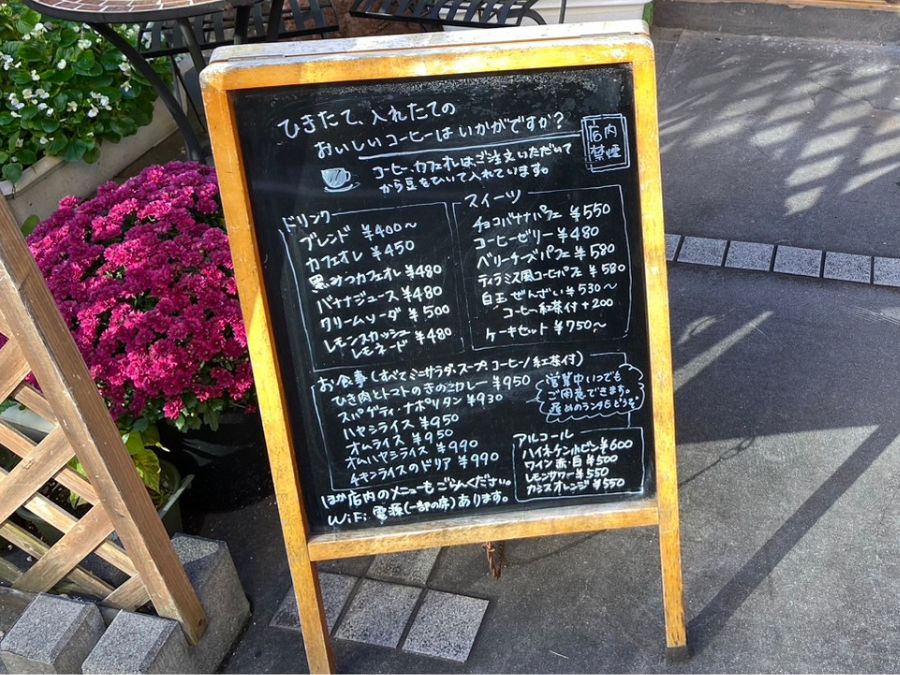 ひきたて、入れたての
おいしいコーヒーはいかがですか？
店内
禁煙
コーヒー、カフェオレはご注文いただいて
から豆をひいて入れています。
ドリンク
ブレンド ¥400〜
カフェオレ ¥450
黒みつカフェオレ ¥480
バナナジュース ¥480
クリームソーダ ¥500
レモンスカッシュ
レモネード ¥480
スイーツ
チョコバナナパフェ ¥550
コーヒーゼリー ¥480
ベリーチーズパフェ ¥580
ティラミス風コーヒーパフェ ¥580
白玉ぜんざい ¥530〜
コーヒー紅茶付+200
ケーキセット ¥750〜
お食事(すべてミニサラダ・スープ・コーヒー/紅茶付)
ひき肉とトマトのきのこカレー ¥950
スパゲティ・ナポリタン ¥930
ハヤシライス ¥950
オムライス ¥950
オムハヤシライス ¥990
チキンライスのドリア ¥990
営業中いつでも
ご用意できます。
遅めのランチもどうぞ
アルコール
ハイネケン小ビン ¥600
ワイン 赤・白 ¥500
レモンサワー ¥550
カシスオレンジ ¥550
ほか店内のメニューもごらんください。
WiFi・電源(一部の席)あります。